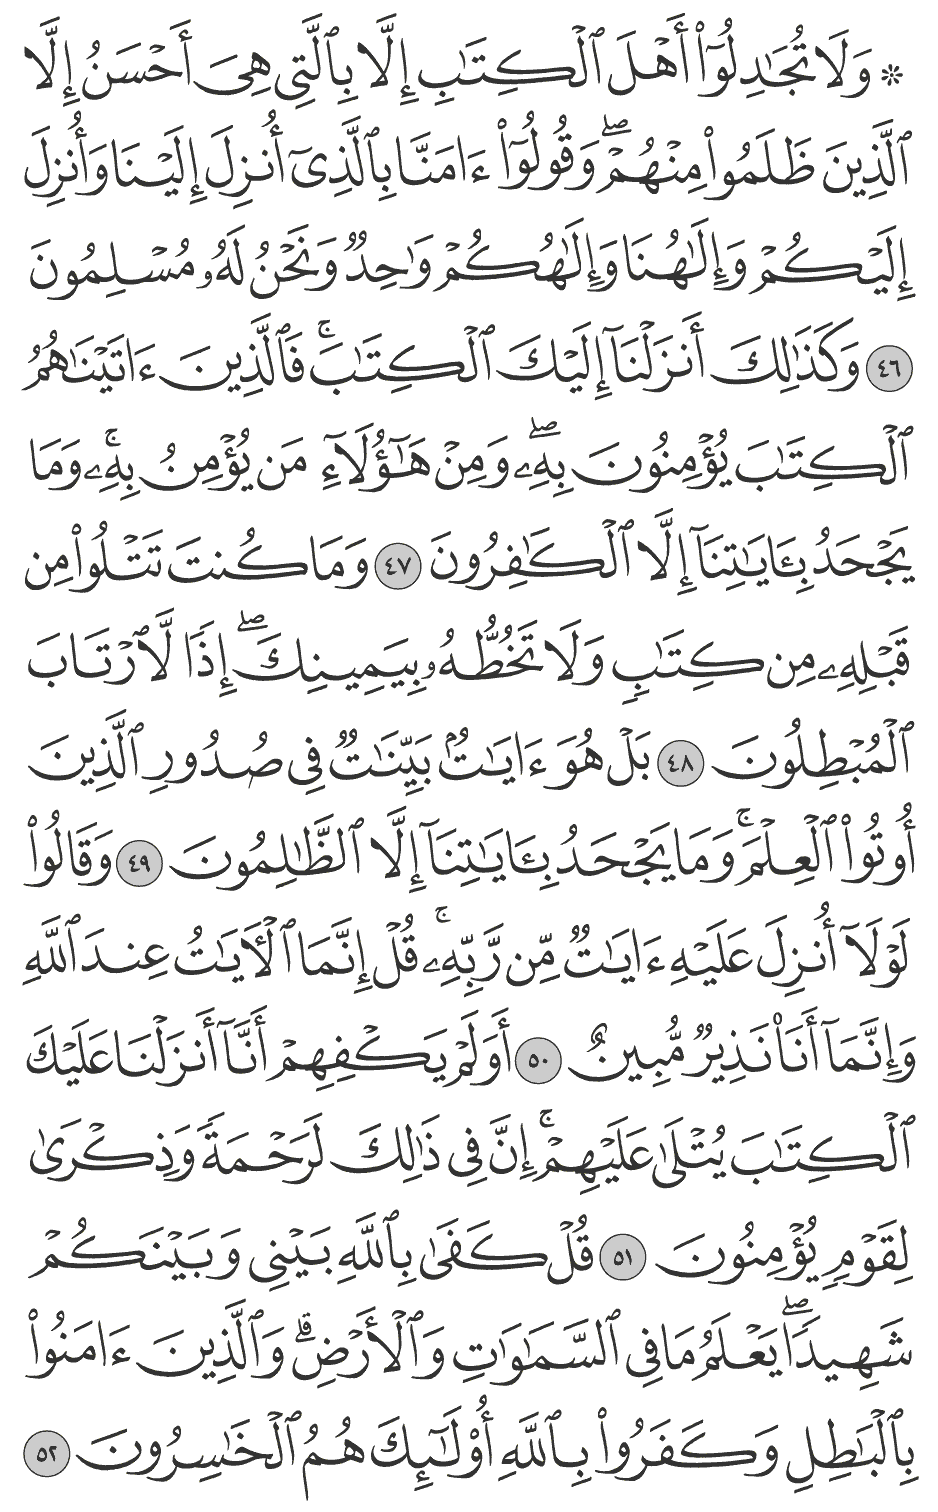 ۞ وَلَا تُجَٰدِلُوٓا۟ أَهْلَ ٱلْكِتَٰبِ إِلَّا بِٱلَّتِى هِىَ أَحْسَنُ إِلَّا
ٱلَّذِينَ ظَلَمُوا۟ مِنْهُمْ ۖ وَقُولُوٓا۟ ءَامَنَّا بِٱلَّذِىٓ أُنزِلَ إِلَيْنَا وَأُنزِلَ
إِلَيْكُمْ وَإِلَٰهُنَا وَإِلَٰهُكُمْ وَٰحِدٌ وَنَحْنُ لَهُۥ مُسْلِمُونَ
٤٦ وَكَذَٰلِكَ أَنزَلْنَآ إِلَيْكَ ٱلْكِتَٰبَ ۚ فَٱلَّذِينَ ءَاتَيْنَٰهُمُ
ٱلْكِتَٰبَ يُؤْمِنُونَ بِهِۦ ۖ وَمِنْ هَٰٓؤُلَآءِ مَن يُؤْمِنُ بِهِۦ ۚ وَمَا
يَجْحَدُ بِـَٔايَٰتِنَآ إِلَّا ٱلْكَٰفِرُونَ ٤٧ وَمَا كُنتَ تَتْلُوا۟ مِن
قَبْلِهِۦ مِن كِتَٰبٍ وَلَا تَخُطُّهُۥ بِيَمِينِكَ ۖ إِذًا لَّٱرْتَابَ
ٱلْمُبْطِلُونَ ٤٨ بَلْ هُوَ ءَايَٰتٌۢ بَيِّنَٰتٌ فِى صُدُورِ ٱلَّذِينَ
أُوتُوا۟ ٱلْعِلْمَ ۚ وَمَا يَجْحَدُ بِـَٔايَٰتِنَآ إِلَّا ٱلظَّٰلِمُونَ ٤٩ وَقَالُوا۟
لَوْلَآ أُنزِلَ عَلَيْهِ ءَايَٰتٌ مِّن رَّبِّهِۦ ۚ قُلْ إِنَّمَا ٱلْـَٔايَٰتُ عِندَ ٱللَّهِ
وَإِنَّمَآ أَنَا۠ نَذِيرٌ مُّبِينٌ ٥٠ أَوَلَمْ يَكْفِهِمْ أَنَّآ أَنزَلْنَا عَلَيْكَ
ٱلْكِتَٰبَ يُتْلَىٰ عَلَيْهِمْ ۚ إِنَّ فِى ذَٰلِكَ لَرَحْمَةً وَذِكْرَىٰ
لِقَوْمٍ يُؤْمِنُونَ ٥١ قُلْ كَفَىٰ بِٱللَّهِ بَيْنِى وَبَيْنَكُمْ
شَهِيدًا ۖ يَعْلَمُ مَا فِى ٱلسَّمَٰوَٰتِ وَٱلْأَرْضِ ۗ وَٱلَّذِينَ ءَامَنُوا۟
بِٱلْبَٰطِلِ وَكَفَرُوا۟ بِٱللَّهِ أُو۟لَٰٓئِكَ هُمُ ٱلْخَٰسِرُونَ ٥٢